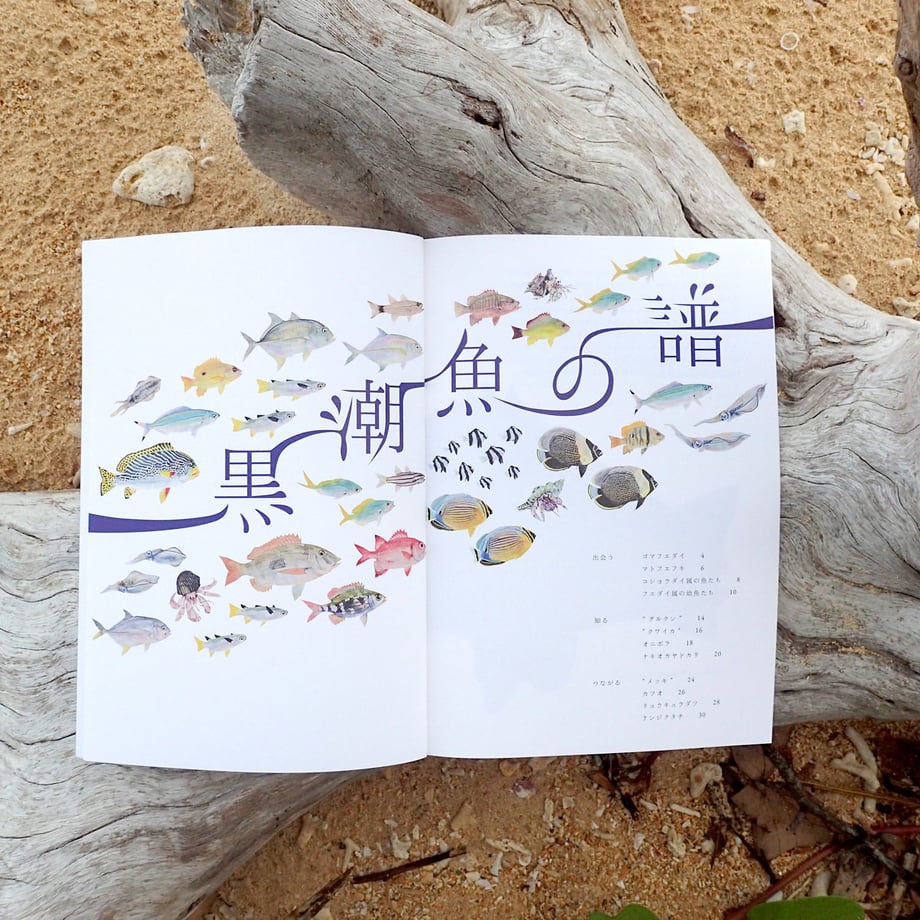 黒潮魚の譜
出会う ゴマフエダイ 4
マトフエフキ 6
コショウダイ属の魚たち 8
フエダイ属の幼魚たち 10
知る “グルクン” 14
“クワイカ” 16
オニボラ 18
ナキオカヤドカリ 20
つながる “メッキ” 24
カツオ 26
リュウキュウダツ 28
テンジクタチ 30